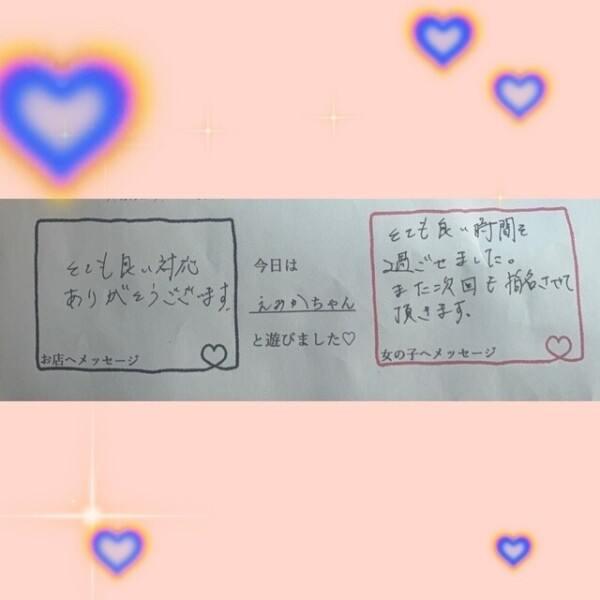 とても良い対応
ありがとうございます。
お店へメッセージ
今日は
えのかちゃん
と遊びました♡
とても良い時間を
過ごせました。
また次回も指名させて
頂きます。
女の子へメッセージ